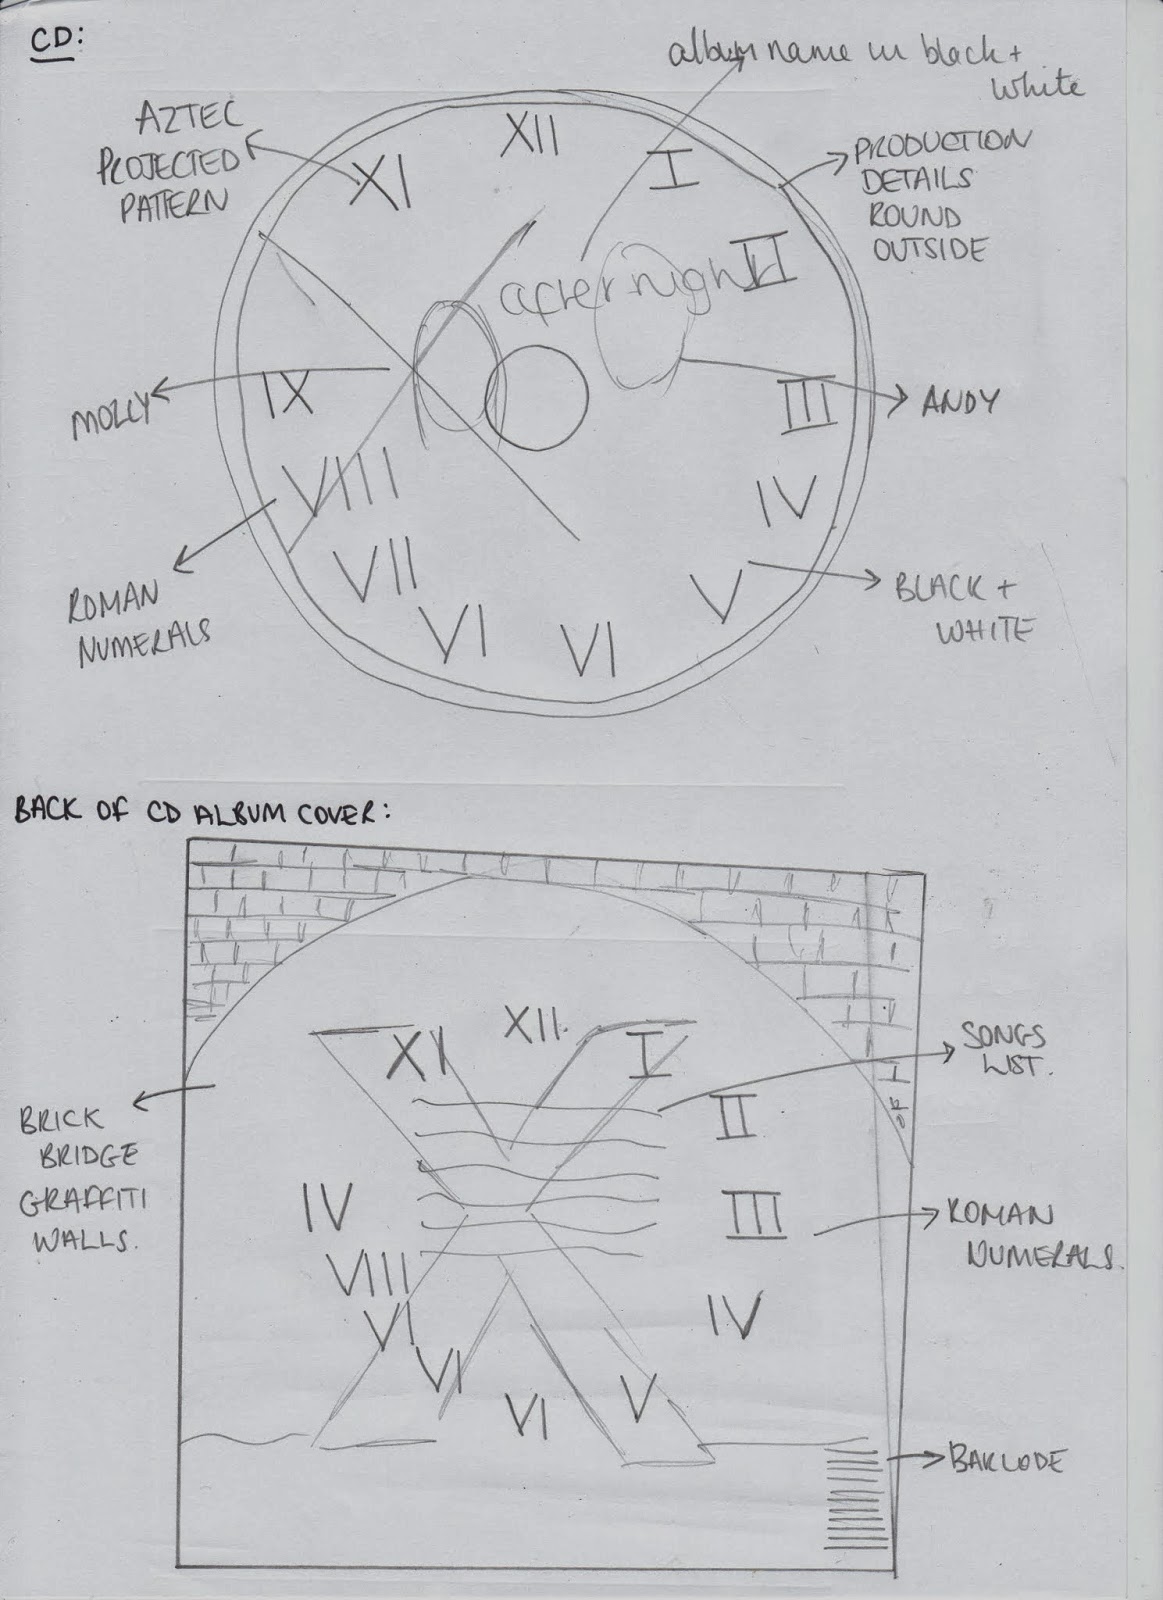 CD:
album name in black +
white
AZTEC
PROJECTED
PATTERN
XII
XI
I
PRODUCTION
DETAILS
ROUND
OUTSIDE
II
after night
MOLLY
IX
III
ANDY
VIII
IV
ROMAN
NUMERALS
VII
V
BLACK +
WHITE
VI
VI
BACK OF CD ALBUM COVER:
XII
XI
I
SONGS
LIST.
II
BRICK
BRIDGE
GRAFFITI
WALLS.
IV
III
ROMAN
NUMERALS.
VIII
VI
IV
VI
V
VI
BARCODE